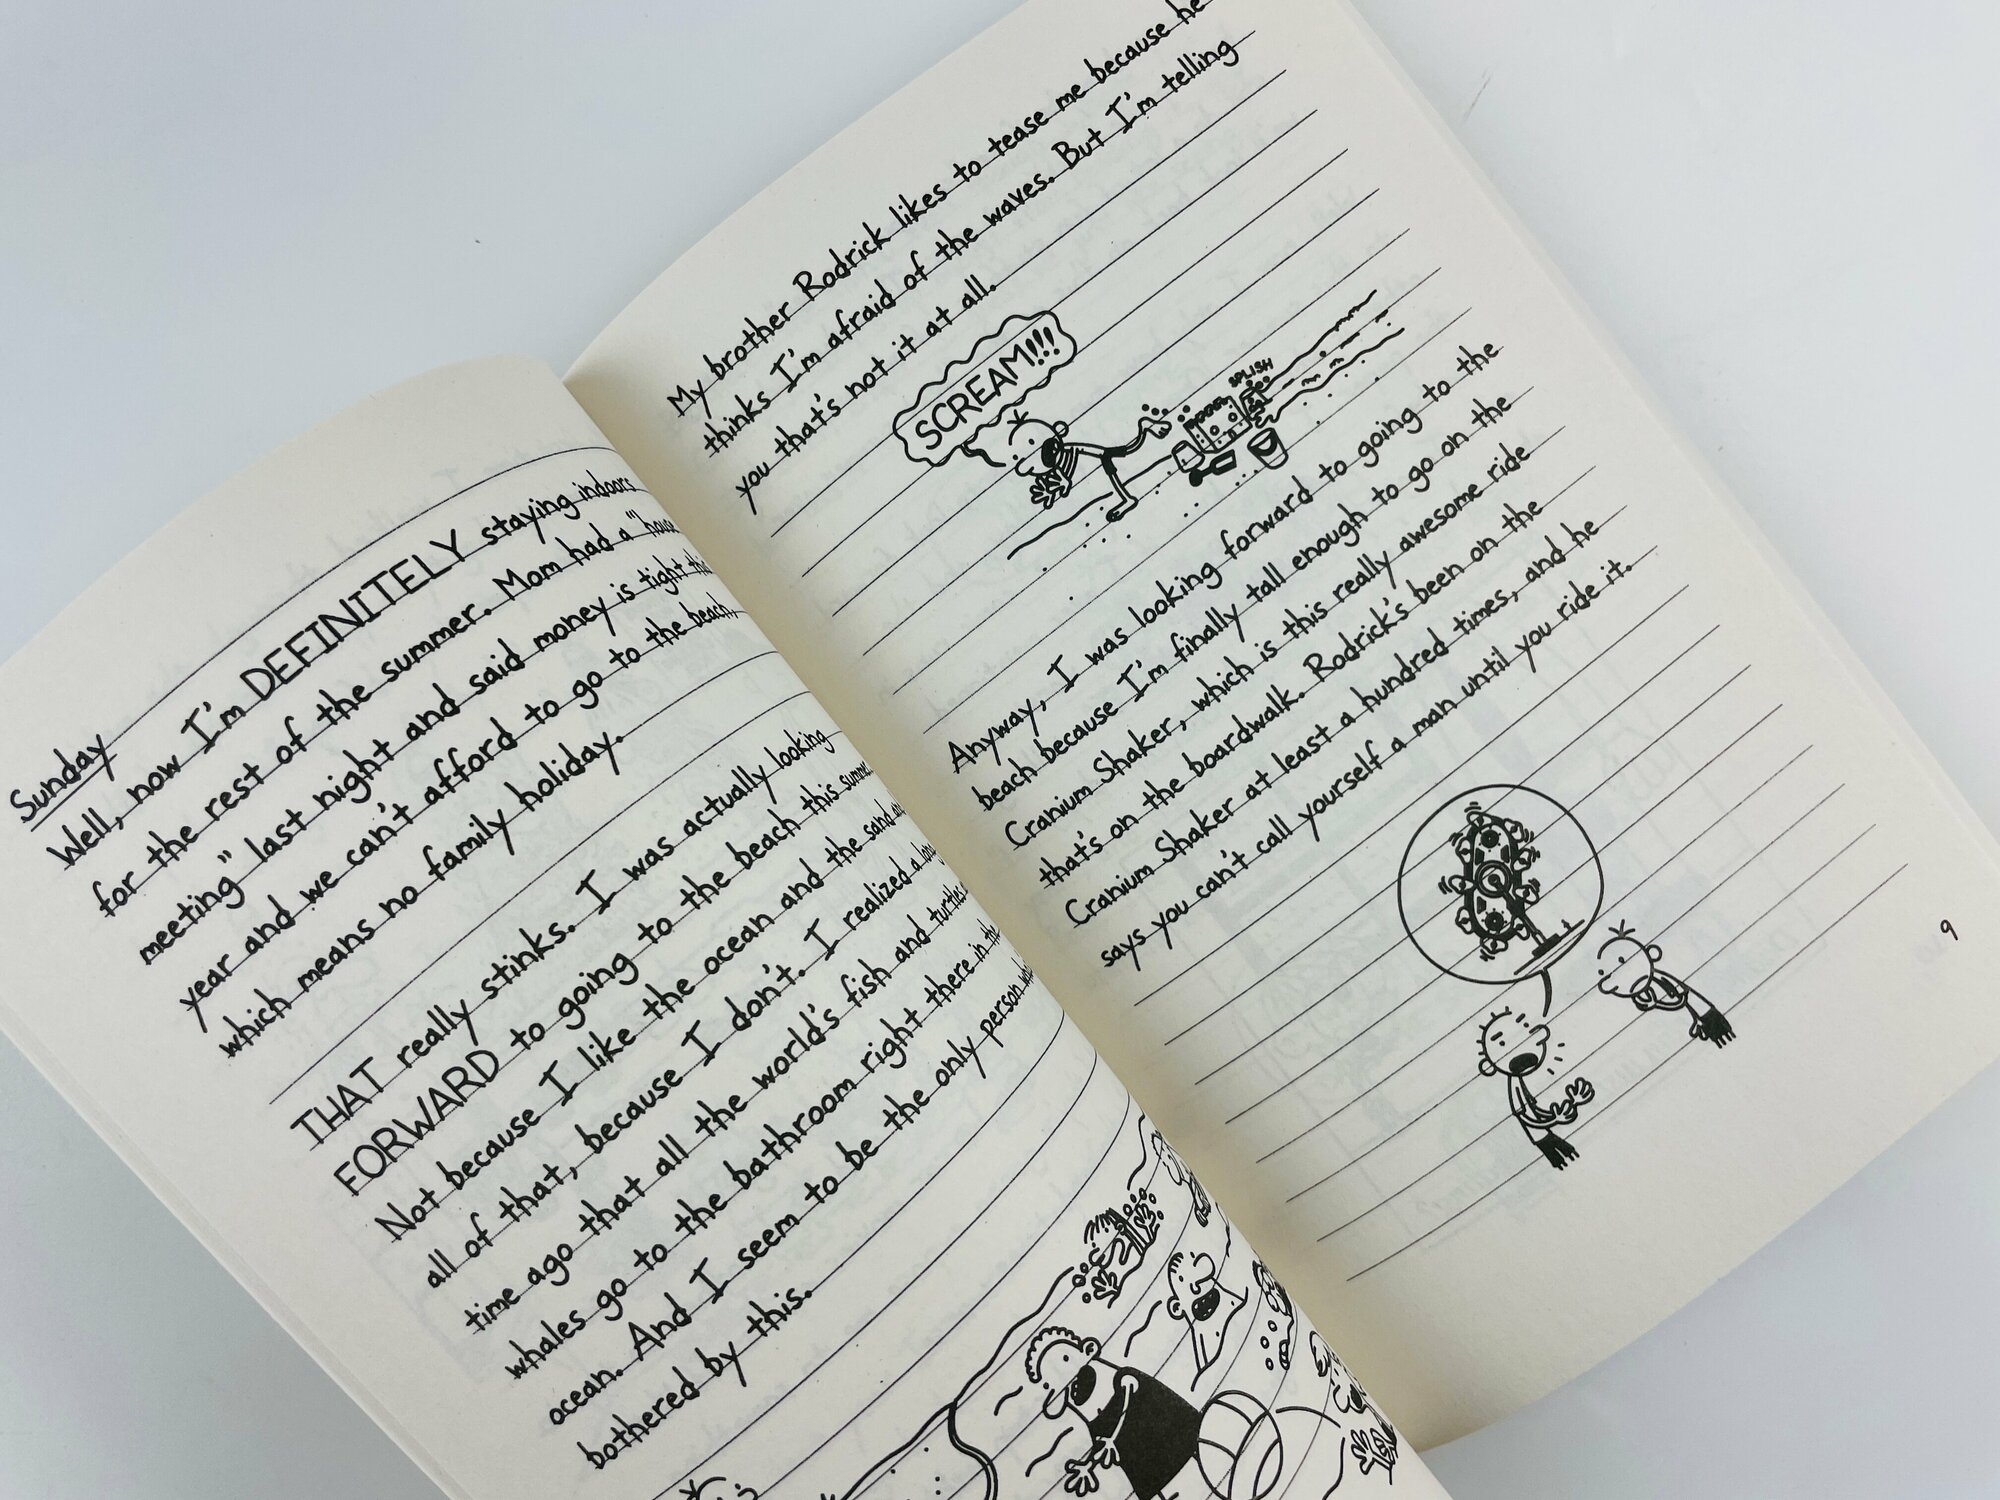 Sunday
Well, now I'm DEFINITELY staying indoors
for the rest of the summer. Mom had a "house
meeting" last night and said money is tight this
year and we can't afford to go to the beach,
which means no family holiday.
THAT really stinks. I was actually looking
FORWARD to going to the beach this summer.
Not because I like the ocean and the sand and
all of that, because I don't. I realized a long
time ago that all the world's fish and turtles
whales go to the bathroom right there in the
ocean. And I seem to be the only person
bothered by this.
My brother Rodrick likes to tease me because he
thinks I'm afraid of the waves. But I'm telling
you that's not it at all.
SCREAM!!!
SPLISH
Anyway, I was looking forward to going to the
beach because I'm finally tall enough to go on the
Cranium Shaker, which is this really awesome ride
that's on the boardwalk. Rodrick's been on the
Cranium Shaker at least a hundred times, and he
says you can't call yourself a man until you ride it.
9